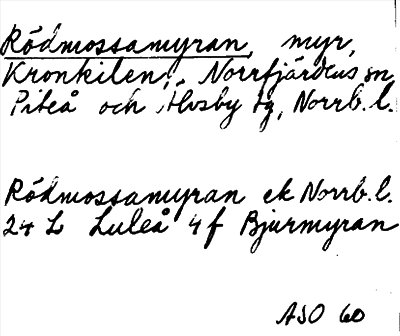 Rödmossamyran, myr,
Kronkilen, Norrfjärdens sn
Piteå och Älvsby tg, Norrb. l.
Rödmossamyran ek Norrb. l.
24 L Luleå 4f Bjurmyran
ASO 60